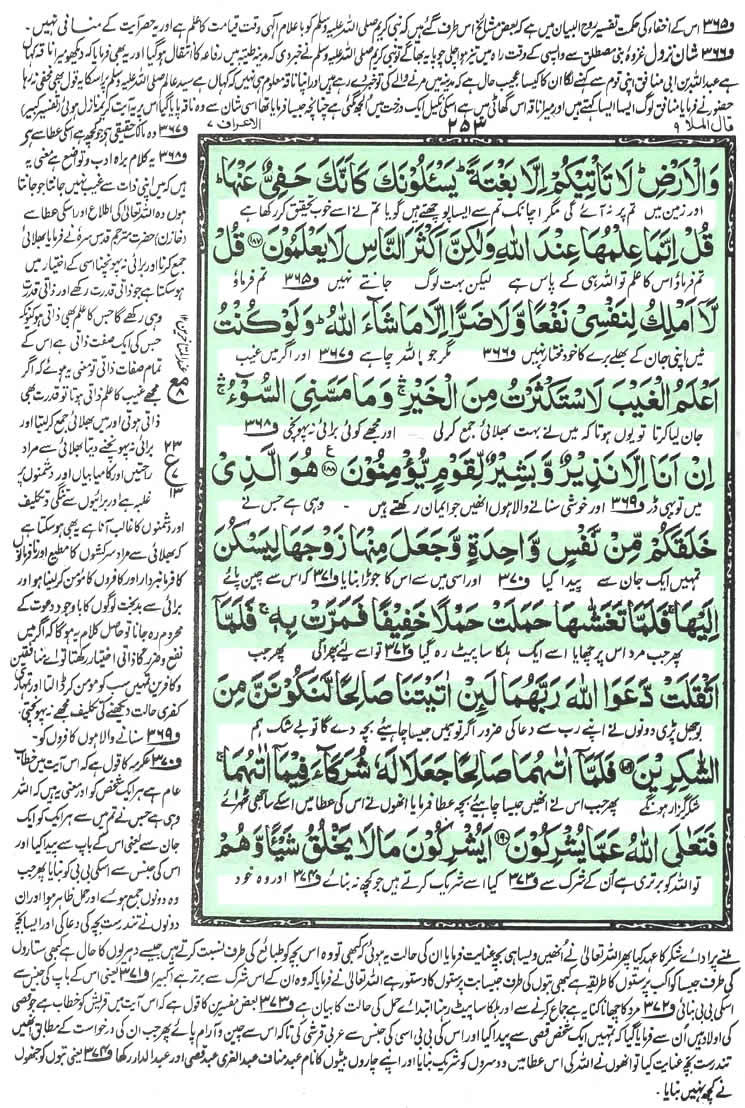 و۳۶۵ اس کے اخفاء کی حکمت تفسیر روح البیان میں ہے کہ بعض مشائخ اس طرف گئے ہیں کہ نبی کریم صلی اللہ علیہ وسلم کو باعلام الٰہی وقت قیامت کا علم ہے اور یہ حصر آیت کے منافی نہیں۔
و۳۶۶ شان نزول غزوۂ بنی مصطلق سے واپسی کے وقت راہ میں تیز ہوا چلی چوپائے بھاگے تو نبی کریم صلی اللہ علیہ وسلم نے خبر دی کہ مدینہ طیبہ میں رفاعہ کا انتقال ہو گیا اور یہ بھی فرمایا کہ دیکھو میرا ناقہ کہاں
ہے عبداللہ بن ابی منافق اپنی قوم سے کہنے لگا ان کا کیسا عجیب حال ہے کہ مدینہ میں مرنے والے کی تو خبر دے رہے ہیں اور اپنا ناقہ معلوم ہی نہیں کہ کہاں ہے سید عالم صلی اللہ علیہ وسلم پر اس کا یہ قول بھی مخفی نہ رہا
حضور نے فرمایا منافق لوگ ایسا ایسا کہتے ہیں اور میرا ناقہ اس گھاٹی میں ہے اسکی نکیل ایک درخت میں الجھ گئی ہے چنانچہ جیسا فرمایا تھا اسی شان سے وہ ناقہ پایا گیا اس پر یہ آیت کریمہ نازل ہوئی (تفسیر کبیر)
قال الملا ۹
۲۵۳
الاعراف ۷
وَالْاَرْضِ ؕ لَا تَاْتِیْكُمْ اِلَّا بَغْتَةً ؕ یَسْـَٔلُوْنَكَ كَاَنَّكَ حَفِیٌّ عَنْهَا ؕ
اور زمین میں تم پر نہ آئے گی مگر اچانک تم سے ایسا پوچھتے ہیں گویا تم نے اسے خوب تحقیق کر رکھا ہے
قُلْ اِنَّمَا عِلْمُهَا عِنْدَ اللّٰهِ وَلٰكِنَّ اَكْثَرَ النَّاسِ لَا یَعْلَمُوْنَ ﴿۱۸۷﴾ قُلْ
تم فرماؤ اس کا علم تو اللہ ہی کے پاس ہے لیکن بہت لوگ جانتے نہیں و۳۶۵ تم فرماؤ
لَّاۤ اَمْلِكُ لِنَفْسِیْ نَفْعًا وَّلَا ضَرًّا اِلَّا مَا شَآءَ اللّٰهُ ؕ وَلَوْ كُنْتُ
میں اپنی جان کے بھلے برے کا خود مختار نہیں و۳۶۶ مگر جو اللہ چاہے و۳۶۷ اور اگر میں غیب
اَعْلَمُ الْغَیْبَ لَاسْتَكْثَرْتُ مِنَ الْخَیْرِ ۛ وَمَا مَسَّنِیَ السُّوْٓءُ ۛ
جان لیا کرتا تو یوں ہوتا کہ میں نے بہت بھلائی جمع کرلی اور مجھے کوئی برائی نہ پہونچی و۳۶۸
اِنْ اَنَا اِلَّا نَذِیْرٌ وَّبَشِیْرٌ لِّقَوْمٍ یُّؤْمِنُوْنَ ﴿۱۸۸﴾ هُوَ الَّذِیْ
میں تو یہی ڈر و۳۶۹ اور خوشی سنانے والا ہوں انہیں جو ایمان رکھتے ہیں - وہی ہے جس نے
خَلَقَكُمْ مِّنْ نَّفْسٍ وَّاحِدَةٍ وَّجَعَلَ مِنْهَا زَوْجَهَا لِیَسْكُنَ
تمہیں ایک جان سے پیدا کیا و۳۷۰ اور اسی میں سے اس کا جوڑا بنایا و۳۷۱ کہ اس سے چین پائے
اِلَیْهَا ۚ فَلَمَّا تَغَشّٰىهَا حَمَلَتْ حَمْلًا خَفِیْفًا فَمَرَّتْ بِهٖ ۚ فَلَمَّاۤ
پھر جب مرد اس پر چھایا اسے ایک ہلکا سا پیٹ رہ گیا و۳۷۲ تو اسے لئے پھرا کی پھر جب
اَثْقَلَتْ دَّعَوَا اللّٰهَ رَبَّهُمَا لَئِنْ اٰتَیْتَنَا صَالِحًا لَّنَكُوْنَنَّ مِنَ
بوجھل پڑی دونوں نے اپنے رب سے دعا کی ضرور اگر تو ہمیں جیسا چاہیے بچہ دے گا تو بے شک ہم
الشّٰكِرِیْنَ ﴿۱۸۹﴾ فَلَمَّاۤ اٰتٰىهُمَا صَالِحًا جَعَلَا لَهٗ شُرَكَآءَ فِیْمَاۤ اٰتٰىهُمَا ۚ
شکر گزار ہونگے پھر جب اس نے انھیں جیسا چاہیے بچہ عطا فرمایا انھوں نے اس کی عطا میں اسکے ساجھی ٹھہرائے
فَتَعٰلَى اللّٰهُ عَمَّا یُشْرِكُوْنَ ﴿۱۹۰﴾ اَیُشْرِكُوْنَ مَا لَا یَخْلُقُ شَیْـًٔا وَّهُمْ
تو اللہ کو برتری ہے اُن کے شرک سے و۳۷۳ کیا اسے شریک کرتے ہیں جو کچھ نہ بنائے و۳۷۴ اور وہ خود
و۳۶۷ وہ مالک حقیقی ہے جو کچھ ہے اسکی عطا سے ہے
و۳۶۸ یہ کلام براہ ادب و تواضع ہے معنی یہ
ہیں کہ میں اپنی ذات سے غیب نہیں جانتا جو جانتا
ہوں وہ اللہ تعالیٰ کی اطلاع اور اسکی عطا سے
(خازن) حضرت مترجم قدس سرہٗ نے فرمایا بھلائی
جمع کرنا اور برائی نہ پہونچنا اسی کے اختیار میں
ہو سکتا ہے جو ذاتی قدرت رکھے اور ذاتی قدرت
وہی رکھے گا جس کا علم بھی ذاتی ہو کیونکہ
جس کی ایک صفت ذاتی ہے اس کے
تمام صفات ذاتی تو معنی یہ ہوئے کہ اگر
مجھے غیب کا علم ذاتی ہوتا تو قدرت بھی
ذاتی ہوتی اور میں بھلائی جمع کر لیتا اور
برائی نہ پہونچنے دیتا بھلائی سے مراد
راحتیں اور کامیابیاں اور دشمنوں پر
غلبہ ہے اور برائیوں سے تنگی و تکلیف
اور دشمنوں کا غالب آنا ہے یہ بھی ہو سکتا ہے
کہ بھلائی سے مراد سرکشوں کا مطیع اور نافرمانوں
کا فرمانبردار اور کافروں کا مومن کر لینا ہو اور
برائی سے بدبخت لوگوں کا باوجود دعوت کے
محروم رہ جانا تو حاصل کلام یہ ہوگا کہ اگر میں
نفع و ضرر کا ذاتی اختیار رکھتا تو اے منافقین
و کافرین تمہیں سب کو مومن کر ڈالتا اور تمہاری
کفری حالت دیکھنے کی تکلیف مجھے نہ پہونچتی
و۳۶۹ سنانے والا ہوں کافروں کو۔
و۳۷۰ عکرمہ کا قول ہے کہ اس آیت میں خطاب
عام ہے ہر ایک شخص کو اور معنی یہ ہیں کہ اللہ
وہی ہے جس نے تم میں سے ہر ایک کو ایک
جان سے یعنی اس کے باپ سے پیدا کیا اور
اس کی جنس سے اسکی بی بی کو بنایا پھر جب
وہ دونوں جمع ہوئے اور حمل ظاہر ہوا اور ان
دونوں نے تندرست بچہ کی دعا کی اور ایسا بچہ
معٌ ۸
۲۳
ع
۷
۱۳
ملنے پر ادائے شکر کا عہد کیا پھر اللہ تعالیٰ نے انھیں ویسا ہی بچہ عنایت فرمایا ان کی حالت یہ ہوئی کہ کبھی تو وہ اس بچہ کو طبائع کی طرف نسبت کرتے ہیں جیسے دہریوں کا حال ہے کبھی ستاروں
کی طرف جیسا کواکب پرستوں کا طریقہ ہے کبھی بتوں کی طرف جیسا بت پرستوں کا دستور ہے اللہ تعالیٰ نے فرمایا کہ وہ ان کے اس شرک سے برتر ہے (کبیر) و۳۷۱ یعنی اس کے باپ کی جنس سے
اسکی بی بی بنائی و۳۷۲ مرد کا چھانا کنایہ ہے جماع کرنے سے اور ہلکا سا پیٹ رہنا ابتدائے حمل کی حالت کا بیان ہے و۳۷۳ بعض مفسرین کا قول ہے کہ اس آیت میں قریش کو خطاب ہے جو قصی
کی اولاد ہیں ان سے فرمایا گیا کہ تمہیں ایک شخص قصی سے پیدا کیا اور اس کی بی بی اسی کی جنس سے عربی قرشی کی تاکہ اس سے چین و آرام پائے پھر جب ان کی درخواست کے مطابق انہیں
تندرست بچہ عنایت کیا تو انھوں نے اللہ کی اس عطا میں دوسروں کو شریک بنایا اور اپنے چاروں بیٹوں کا نام عبد مناف عبدالعزی عبد قصی اور عبدالدار رکھا و۳۷۴ یعنی بتوں کو جنھوں
نے کچھ نہیں بنایا۔